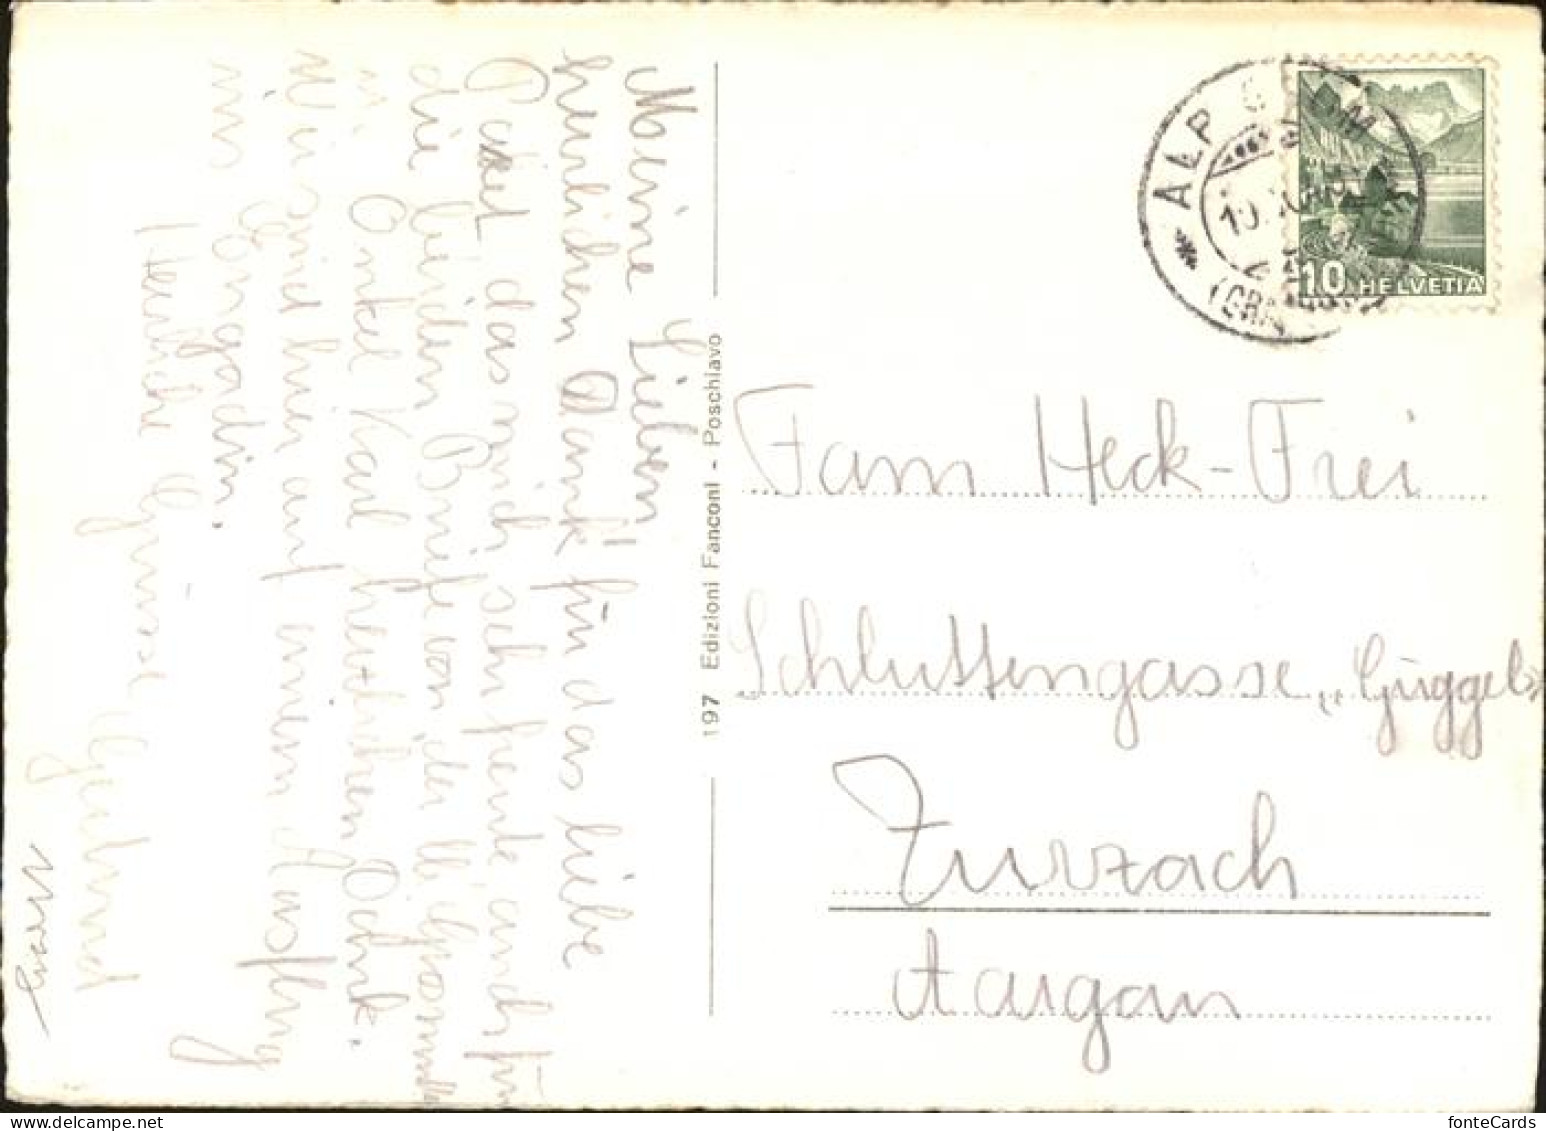 Meine Lieben!
herrlichen Dank für das liebe
Paket das mich sehr freute, auch für
die beiden Briefe von der
Onkel Karl herzlichen Dank.
Wir sind hier auf einem Ausflug
im Engadin.
Herzliche Grüsse
197 Edizioni Fanconi - Poschiavo
ALP GRÜM
10
HELVETIA
Fam Heck-Frei
Schluttengasse „Güggel"
Zurzach
Aargau
fonteCards
www.delcampe.net